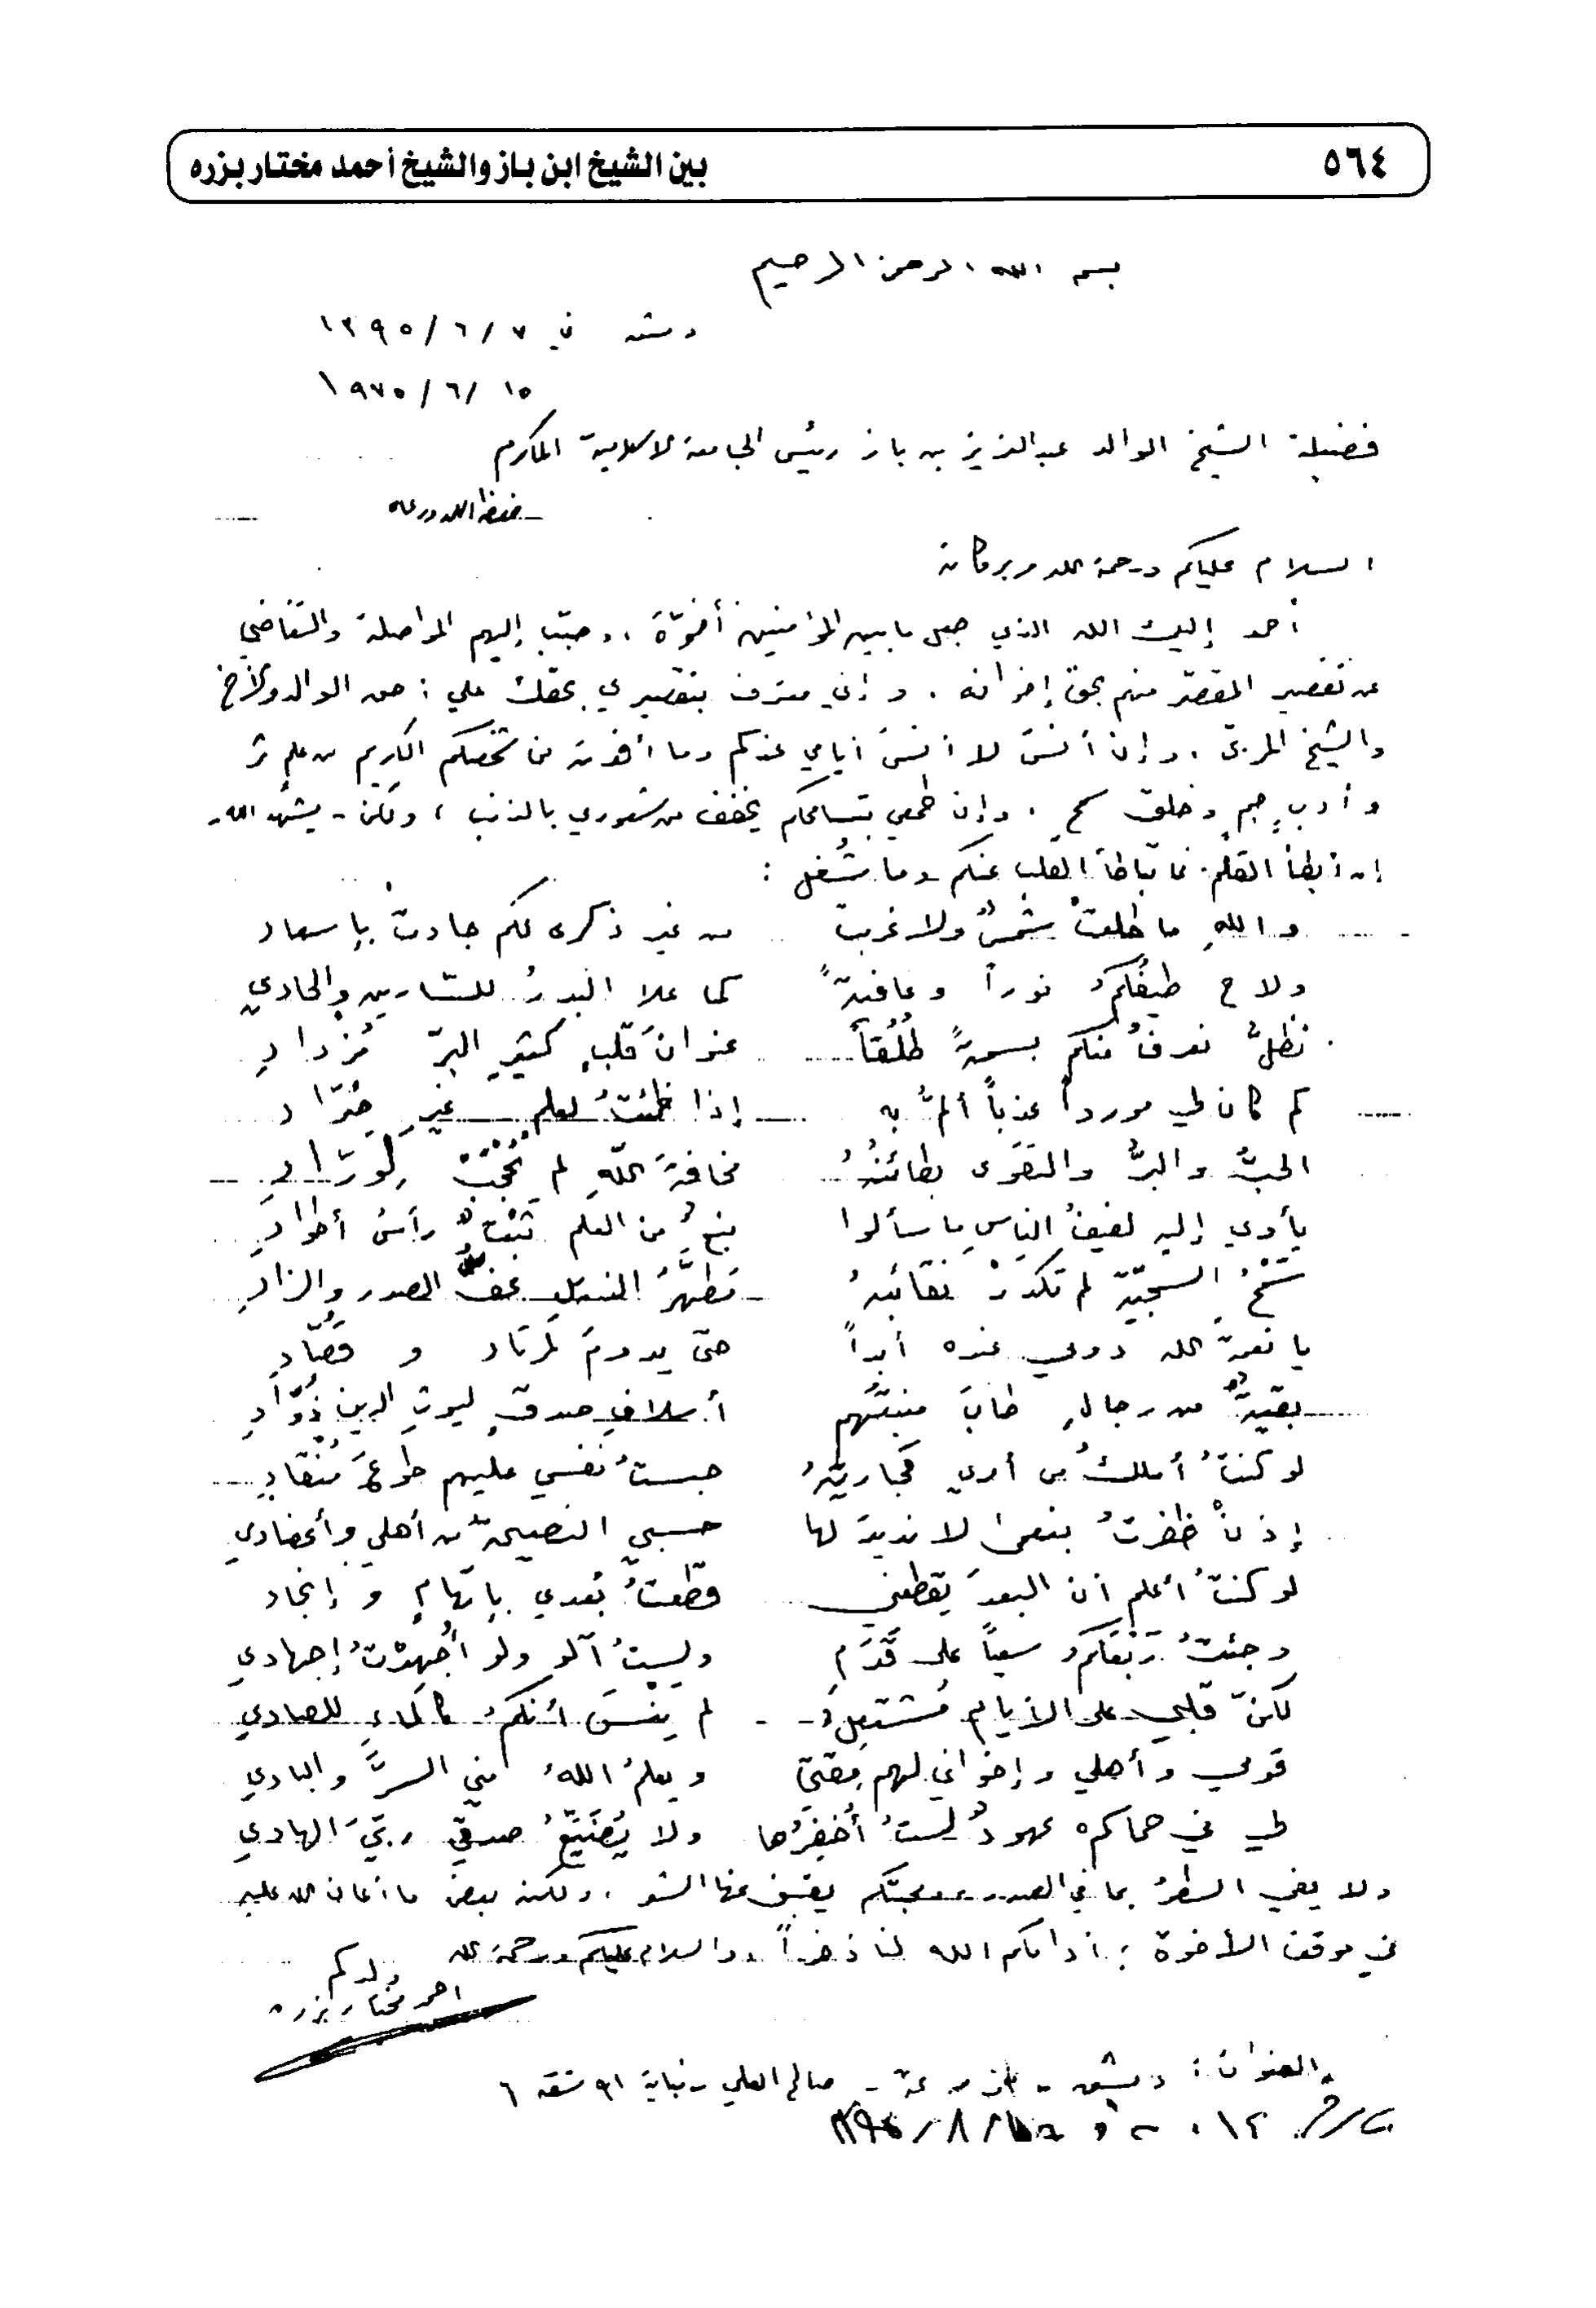 ٥٦٤
بين الشيخ ابن باز والشيخ أحمد مختار بزره
بسم الله الرحمن الرحيم
دمشق في ٧ / ٦ / ١٣٩٥
١٥ / ٦ / ١٩٧٥
فضيلة الشيخ الوالد عبد العزيز بن باز رئيس الجامعة الاسلامية المكرم
حفظه الله ورعاه
السلام عليكم ورحمة الله وبركاته
أحمد إليك الله الذي جعل ما بين المؤمنين أخوّة ، وحبّب إليهم المواصلة والتغاضي
عن تقصير المقصّر منهم بحق إخوانه . وإني معترف بتقصيري بحقك علي : حق الوالد والأخ
والشيخ المربيّ ، وإن أنسَ لا أنسَ أيامي عندكم وما أفدته من شخصكم الكريم من علم ثر
وأدبٍ جمٍ وخلقٍ سمحٍ . وإن طمعي بتسامحكم يخفف من شعوري بالذنب ، ولكن - يشهد الله -
إن أبطأ القلم فما تباطأ القلب عنكم وما شُغل :
واللهِ ما طلعتْ شمسٌ ولا غربت من غير ذكرى لكم جادت بإسعادِ
ولاح طيفُكمُ نوراً وعافيةً كما علا البدرُ للسّارين والحادي
نظلُّ نعرفُ منكم بسمةً طُلُقاً عنوانَ قلبٍ كثيرِ البرّ مُزدادِ
كم كان لي مورداً عذباً ألمُّ به إذا ظمئتُ لعلمٍ غيرِ ضرّادِ
الحبُّ والبرُّ والتقوى بطائنُهُ مخافةَ اللهِ لم تُحْجَبْ لِورّادِ
يأوي إليه لفيفُ الناسِ ما سألوا نبعٌ من العلم ثَبْتٌ رأسُ أطوادِ
سَمْحُ السجيّة لم تكدرْ نقائبهُ مُطهَّرُ النيلِ عفُّ الصدر والزادِ
يا نعمةَ الله دومي عنده أبداً حتى يدومَ لمرتاد وقُصّادِ
بقيةٌ من رجالٍ طابَ منبتُهم أسلافِ صدقٍ ليوثِ الدين ذُوّادِ
لو كنتُ أملكُ من أمري مجاريَهُ حبستُ نفسي عليهم طوعَ مُنْقادِ
إذنْ ظفرتُ بنعمى لا نديدَ لها حسبي النصيحةُ من أهلي وأعضادي
لو كنتُ أعلم أن البعدَ يقطعني قطّعتُ بُعدي بإتهامٍ وإنجاد
وجئتُ رَبْعَكمُ سعياً على قَدَمٍ ولستُ آلو ولو أُجهِدْتُ إجهادي
لكنّ قلبي على الأيام مُشتعِلٌ لم ينسَ أنكمُ كالماءِ للصادي
قومي وأهلي وإخواني لهم مِقتيَ ويعلمُ اللهُ مني السرَّ والبادي
لي في حماكم عهودٌ لستُ أُخفِرُها ولا يُضَيّعُ صدقي ربيَ الهادي
ولا يفي السطرُ بما في الصدر ومحبتكم يضيق عنها الشعر ، ولكنه بعض ما أعان الله عليه
في موقف الأخوة ؛ أدامكم الله لنا ذخراً ، والسلام عليكم ورحمة الله
ولدكم
احمد مختار بزره
العنوان : دمشق - - صالح العلي - بناية ٣١ شقة ٦